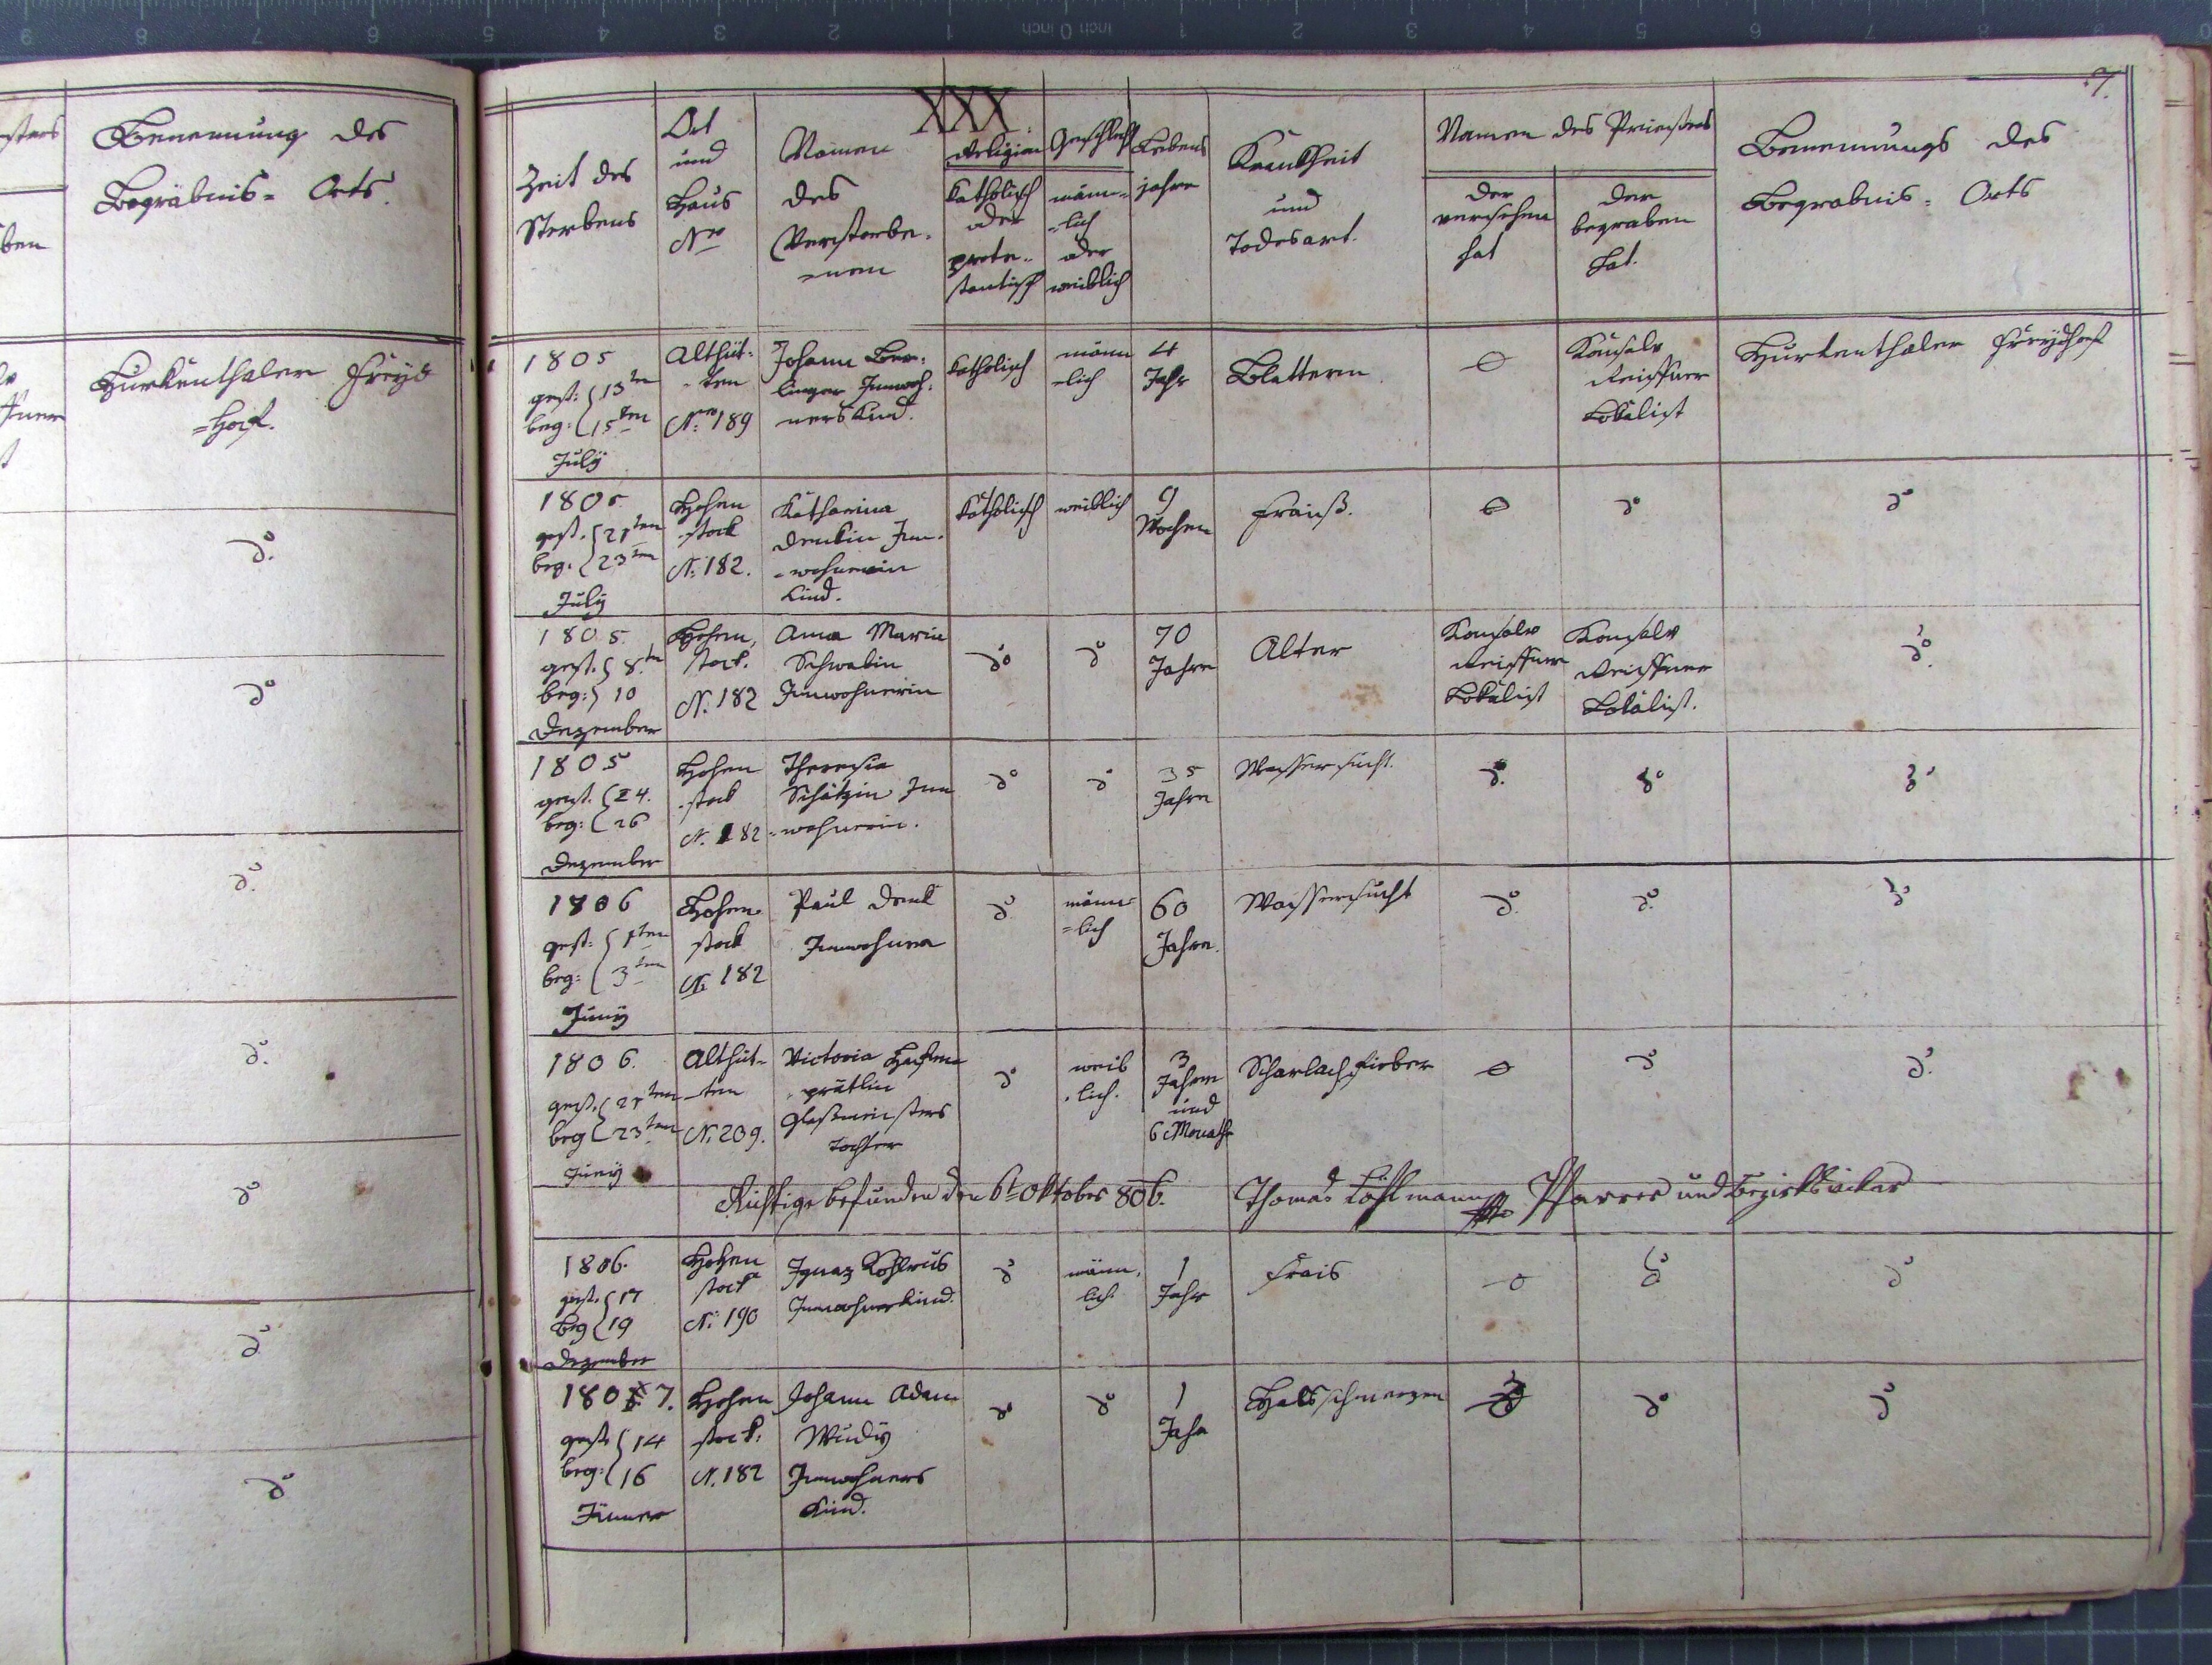 Benennung des
Begräbnis= Orts.
Hurkenthaler Freyd
=hof.
do
do
do
do
do
do
do
XXX.
7.
Zeit des
Sterbens
Ort
und
Haus
Nro
Namen
des
Verstorbe=
=nen
Religion
Katholisch
oder
prote=
stantisch
Geschlecht
männ=
=lich
oder
weiblich
Lebens
jahre
Krankheit
und
Todesart.
Namen des Priesters
der
versehen
hat
der
begraben
hat.
Benennungs des
Begräbnis= Orts
1805
gest: 13ten
beg: 15ten
July
Althüt=
=ten
Nro 189
Johann
Inwoh=
ners Kind.
Katholisch
männ
=lich
4
Jahr
Blattern
Konsalv
Reissner
Lokalist
Hurkenthaler Freydhof
1805
gest. 21ten
beg. 23ten
July
Hohen
stock
N: 182.
Katharina
Denkin Inn=
=wohnerin
Kind.
Katholisch
weiblich
9
Wochen
Frais.
do
do
1805.
gest. 8ten
beg: 10
Dezember
Hohen,
stock.
N. 182
Anna Maria
Schwabin
Innwohnerin
do
do
70
Jahre
Alter
Konsalv
Reissner
Lokalist
Konsalv
Reissner
Lokalist.
do
1805
gest. 24.
beg: 26
Dezember
Hohen
stock
N. 182
Theresia
Schätzin Inn
=wohnerin.
do
do
35
Jahre
Wassersucht.
do
do
do
1806
gest: 1ten
beg: 3ten
Juny
Hohen
stock
N. 182
Paul Denk
Innwohner
do
männ=
=lich
60
Jahre.
Wassersucht
do
do
do
1806.
gest. 21ten
beg 23ten
Juny
Althüt=
=ten
N. 209.
Victoria
Glasmeisters
Tochter
do
weib
lich.
3
Jahre
und
6 Monath
Scharlachfieber
do
do
Richtig befunden den 6t Oktober 806. Thomas Pfarrer und Bezirksvickar
1806.
gest. 17
beg 19
Dezember
Hohen
stock
N: 190
Ignaz Kohlrus
Innwohnerkind.
do
männ,
lich
1
Jahr
Frais
do
do
1807.
gest. 14
beg: 16
Jänner
Hohen
stock:
N. 182
Johann Adam
Wudy
Innwohners
Kind.
do
do
1
Jahr
Halsschmerzen
do
do